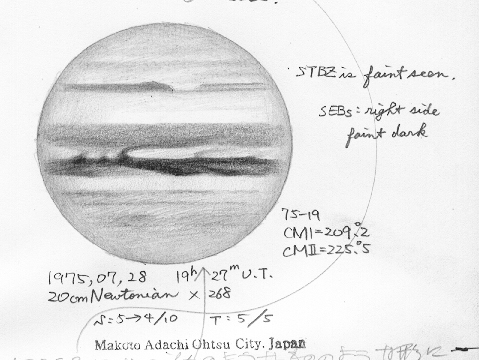 STBZ is faint seen.
SEBs : right side
faint dark
75-19
CMI=209.°2
CMII=225.°5
1975, 07, 28 19h 27m U.T.
20cm Newtonian × 268
S=5→4/10 T=5/5
Makoto Adachi Ohtsu City. Japan